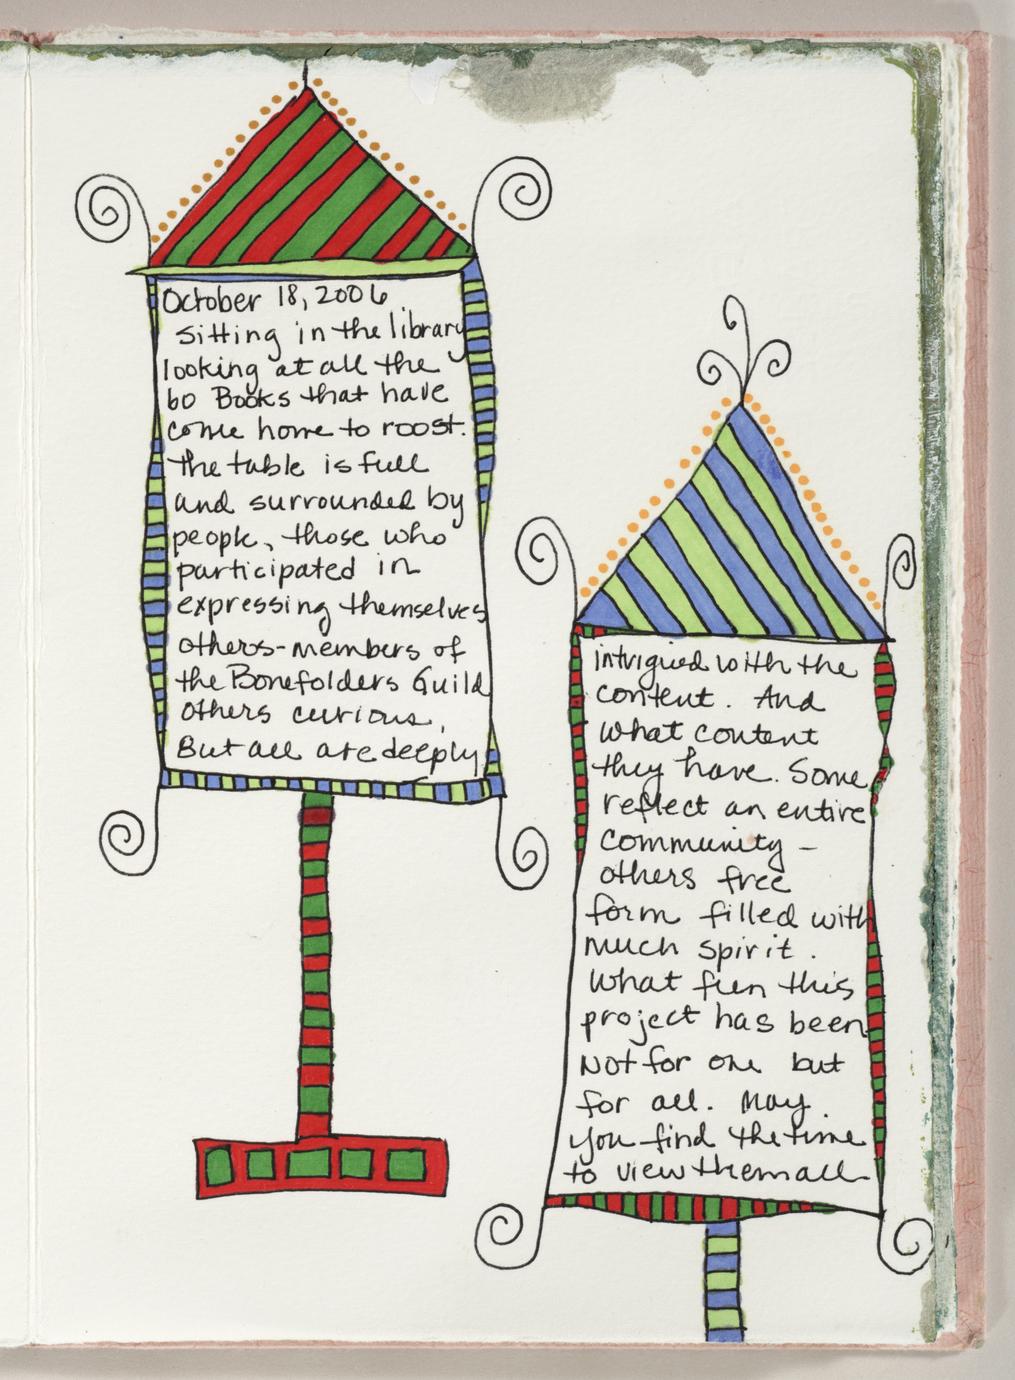 October 18, 2006
Sitting in the library
looking at all the
60 Books that have
come home to roost.
The table is full
and surrounded by
people, those who
participated in
expressing themselves
others-members of
the Bonefolders Guild
others curious,
But all are deeply
intrigued with the
content. And
what content
they have. Some
reflect an entire
community -
others free
form filled with
much spirit.
What fun this
project has been
Not for one but
for all. May
you find the time
to view them all